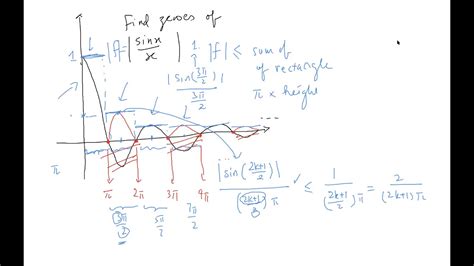 Find zeroes of
|f| = |sin x / x|
1
|f| ≤ sum of
of rectangle
π × height
1
|sin(3π/2)| / 3π/2
π
π 2π 3π 4π
3π/2 5π/2 7π/2
|sin(2k+1/2)| / (2k+1/2)π ≤ 1 / (2k+1/2)π = 2 / (2k+1)π